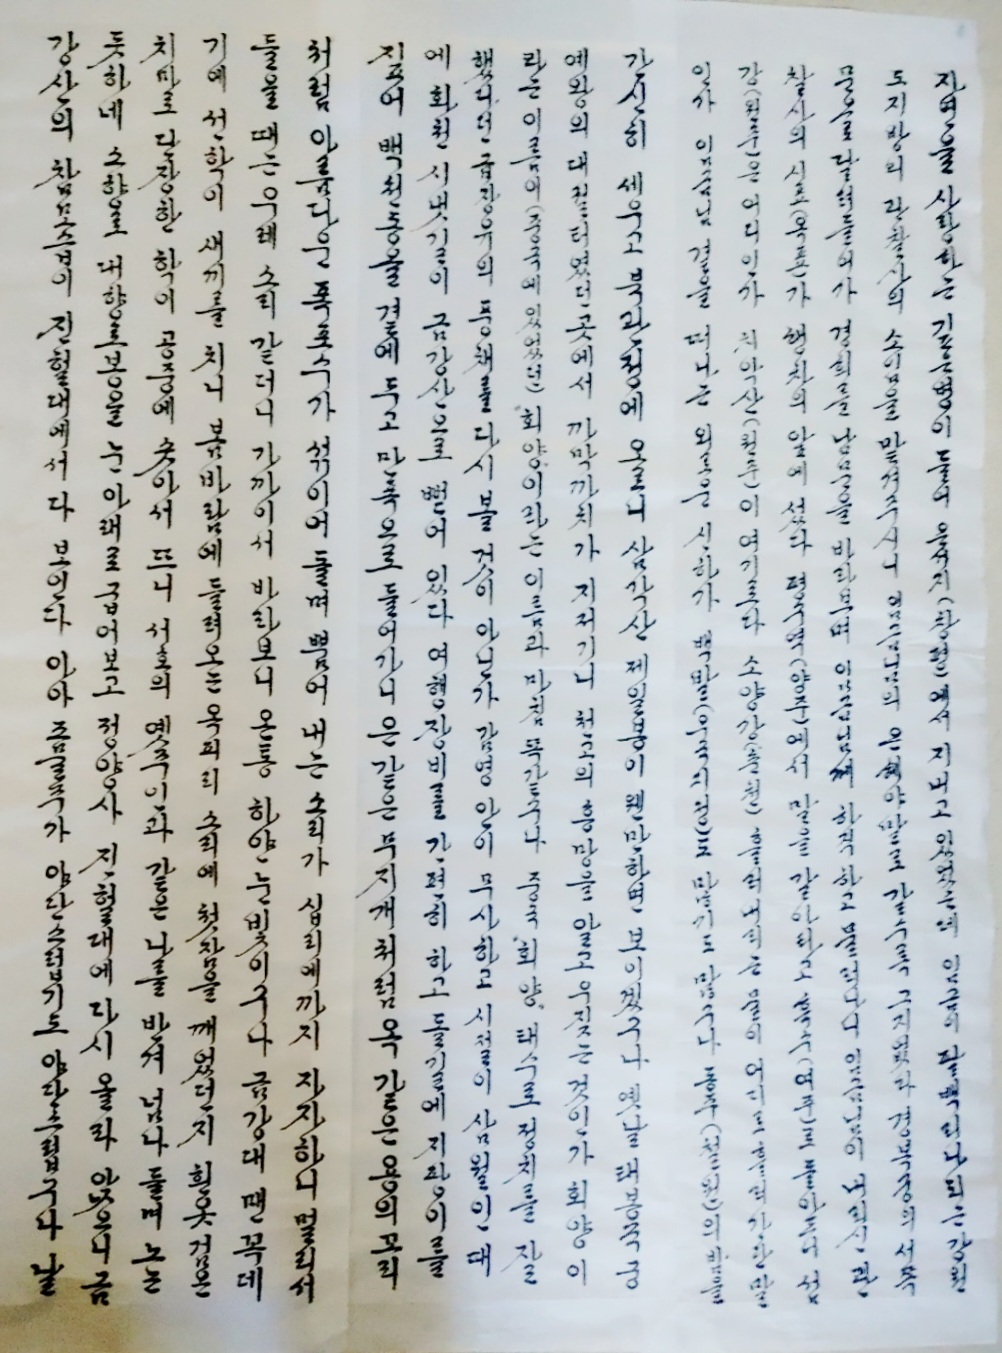 자연을 사랑하는 깊은병이 들어 은서지(창평)에서 지내고 있었는데 임금의 팔백리나 되는 강원
도지방의 관찰사의 소임을 맡겨주시니 임금님의 은혜야말로 갈수록 그지없다 경복궁의 서쪽
문으로 달려들어가 경회루 남문을 바라보며 임금님께 하직하고 물러나니 임금님이 내리신 관
찰사의 신표(옥절)가 행차의 앞에 섰다 평구역(양주)에서 말을 갈아타고 흑수(여주)로 돌아드니 섬
강(원주)은 어디인가 치악산(원주)이 여기로다 소양강(춘천) 흘러내리는 물이 어디로 흘러간단 말
인가 임금님 곁을 떠나는 외로운 신하가 백발(우국지정)도 많기도 많구나 동주(철원)의 밤을
간신히 세우고 북관정에 오르니 삼각산 제일봉이 웬만하면 보이겠구나 옛날 태봉국 궁
예왕의 대궐터였던 곳에서 까막까치가 지저귀니 천고의 흥망을 알고 우짖는 것인가 회양이
라는 이름이(중국에 있었던) '회양'이라는 이름과 마침 똑같구나 중국 '회양' 태수로 정치를 잘
했다던 급장유의 풍채를 다시 볼 것이 아닌가 감영 안이 무사하고 시절이 삼월인 때
에 화천 시냇길이 금강산으로 뻗어 있다 여행장비를 간편히 하고 돌길에 지팡이를
짚어 백천동을 곁에 두고 만폭동으로 들어가니 은 같은 무지개처럼 옥 같은 용의 꼬리
처럼 아름다운 폭포수가 섞이어 돌며 뿜어 내는 소리가 십리에까지 자자하니 멀리서
들을 때는 우레 소리 같더니 가까이서 바라보니 온통 하얀 눈빛이구나 금강대 맨 꼭대
기에 선학이 새끼를 치니 봄바람에 들려오는 옥피리 소리에 첫잠을 깨었던지 희옷 검은
치마로 단장한 학이 공중에 솟아서 뜨니 서호의 옛주인과 같은 나를 반겨 넘나 들며 노는
듯하네 소향로 대향로봉을 눈 아래로 굽어보고 정양사 진헐대에 다시 올라 앉으니 금
강산의 참모습이 진헐대에서 다 보인다 아아 조물주가 야단스럽기도 야단스럽구나 날